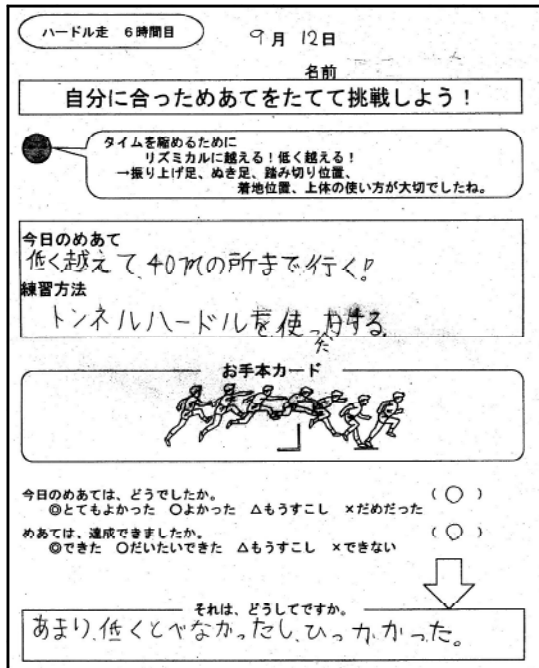 ハードル走 6時間目
9月 12日
名前
自分に合っためあてをたてて挑戦しよう!
タイムを縮めるために
リズミカルに越える!低く越える!
→振り上げ足、ぬき足、踏み切り位置、
着地位置、上体の使い方が大切でしたね。
今日のめあて
低く越えて、40mの所まで行く!
練習方法
トンネルハードルを使った
お手本カード
今日のめあては、どうでしたか。 (○)
◎とてもよかった ○よかった △もうすこし ×だめだった
めあては、達成できましたか。 (○)
◎できた ○だいたいできた △もうすこし ×できない
それは、どうしてですか。
あまり、低くとべなかったし、ひっかかった。